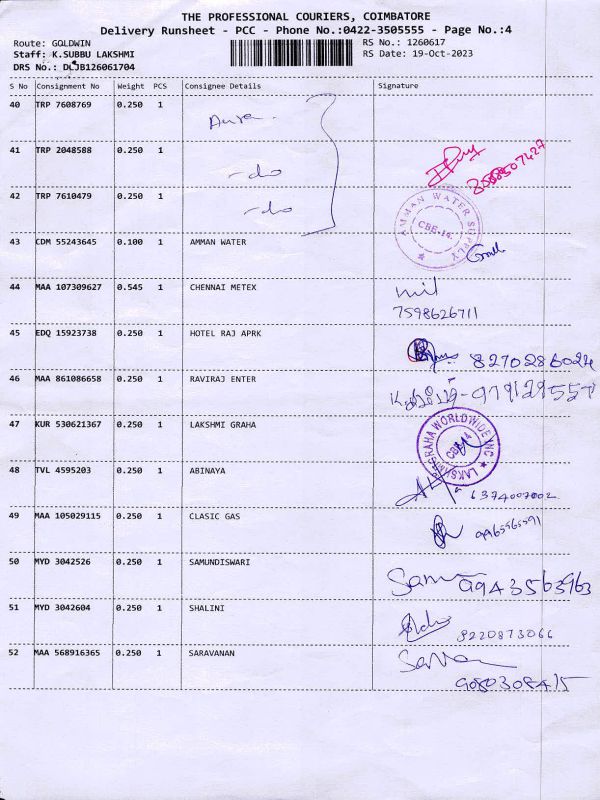 THE PROFESSIONAL COURIERS, COIMBATORE
Delivery Runsheet - PCC - Phone No.:0422-3505555 - Page No.:4
Route: GOLDWIN
RS No.: 1260617
Staff: K.SUBBU LAKSHMI
RS Date: 19-Oct-2023
DRS No.: DLJB126061704
S No Consignment No Weight PCS Consignee Details Signature
40 TRP 7608769 0.250 1
41 TRP 2048588 0.250 1 -do
42 TRP 7610479 0.250 1 -do
AMMAN WATER SUPPLY
CBE-14.
43 CDM 55243645 0.100 1 AMMAN WATER
44 MAA 107309627 0.545 1 CHENNAI METEX
7598626711
45 EDQ 15923738 0.250 1 HOTEL RAJ APRK
8270286024
46 MAA 861086658 0.250 1 RAVIRAJ ENTER
47 KUR 530621367 0.250 1 LAKSHMI GRAHA
LAKSHMIGRAHA WORLDWIDE INC
48 TVL 4595203 0.250 1 ABINAYA
6374007002
49 MAA 105029115 0.250 1 CLASIC GAS
50 MYD 3042526 0.250 1 SAMUNDISWARI
9943563963
51 MYD 3042604 0.250 1 SHALINI
8220873066
52 MAA 568916365 0.250 1 SARAVANAN
9080308415